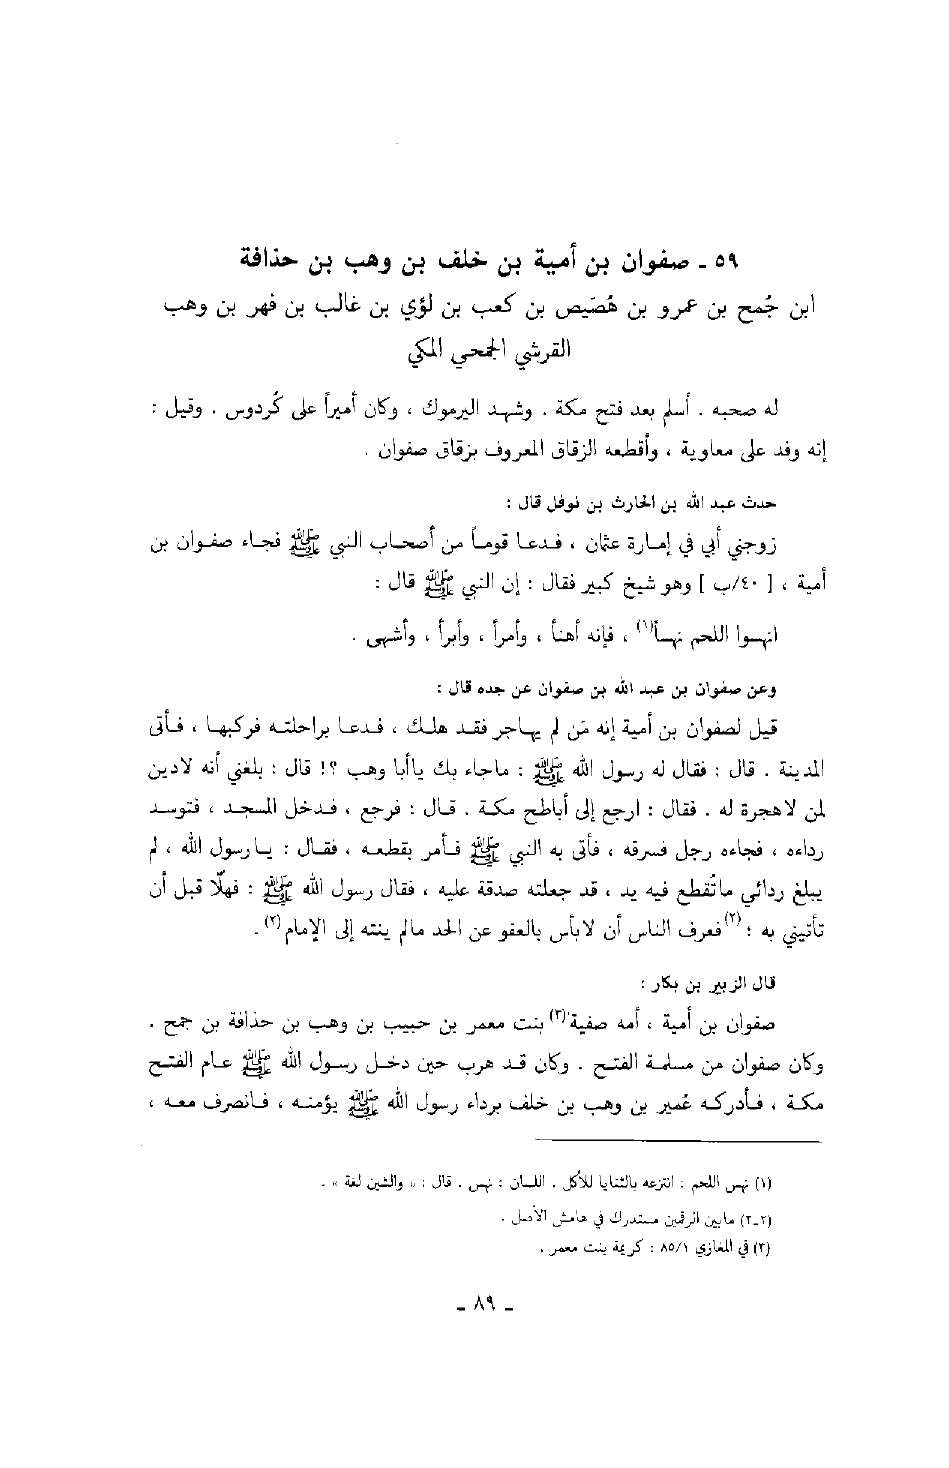 ٥٩ ـ صفوان بن أمية بن خلف بن وهب بن حذافة
ابن جُمح بن عمرو بن هُصَيص بن كعب بن لؤي بن غالب بن فهر بن وهب
القرشي الجمحي المكي
له صحبه . أسلم بعد فتح مكة . وشهد اليرموك ، وكان أميراً على كُردوس . وقيل :
إنه وفد على معاوية ، وأقطعه الزقاق المعروف بزقاق صفوان .
حدث عبد الله بن الحارث بن نوفل قال :
زوجني أبي في إمارة عثمان ، فدعا قوماً من أصحاب النبي ﷺ فجاء صفوان بن
أمية ، [ ٤٠/ب ] وهو شيخ كبير فقال : إن النبي ﷺ قال :
انهسوا اللحم نهساً(١) ، فإنه أهنأ ، وأمرأ ، وأبرأ ، وأشهى .
وعن صفوان بن عبد الله بن صفوان عن جده قال :
قيل لصفوان بن أمية إنه مَن لم يهاجر فقد هلك ، فدعا براحلته فركبها ، فأتى
المدينة . قال : فقال له رسول الله ﷺ : ماجاء بك ياأبا وهب ؟! قال : بلغني أنه لادين
لمن لاهجرة له . فقال : ارجع إلى أباطح مكة . قال : فرجع ، فدخل المسجد ، فتوسد
رداءه ، فجاءه رجل فسرقه ، فأتى به النبي ﷺ فأمر بقطعه ، فقال : يارسول الله ، لم
يبلغ ردائي ماتُقطع فيه يد ، قد جعلته صدقة عليه ، فقال رسول الله ﷺ : فهلّا قبل أن
تأتيني به ؛ (٢)فعرف الناس أن لابأس بالعفو عن الحد مالم ينته إلى الإمام(٢) .
قال الزبير بن بكار :
صفوان بن أمية ، أمه صفية(٣) بنت معمر بن حبيب بن وهب بن حذافة بن جمح .
وكان صفوان من مسلمة الفتح . وكان قد هرب حين دخل رسول الله ﷺ عام الفتح
مكة ، فأدركه عُمير بن وهب بن خلف برداء رسول الله ﷺ يؤمنه ، فانصرف معه ،
(١) نهس اللحم : انتزعه بالثنايا للأكل . اللسان : نهس . قال : « والشين لغة » .
(٢-٢) مابين الرقمين مستدرك في هامش الأصل .
(٣) في المغازي ٨٥/١ : كريمة بنت معمر .
ـ ٨٩ ـ